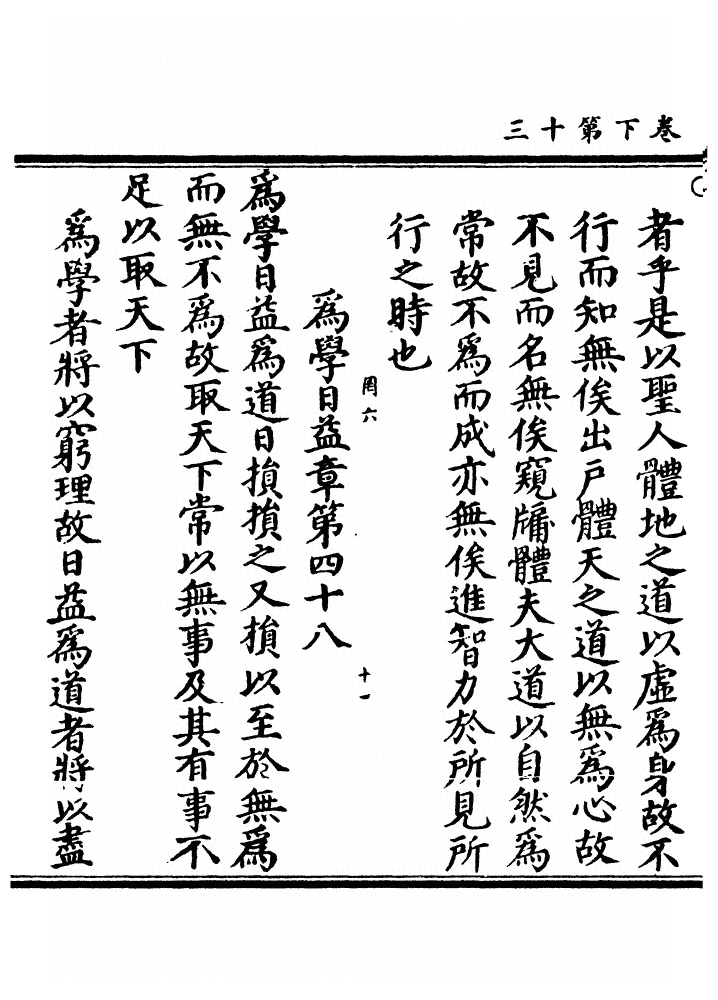 卷下第十三
者乎是以聖人體地之道以虛爲身故不
行而知無俟出戶體天之道以無爲心故
不見而名無俟窺牖體夫大道以自然爲
常故不爲而成亦無俟進智力於所見所
行之時也
罔六
十一
爲學日益章第四十八
爲學日益爲道日損損之又損以至於無爲
而無不爲故取天下常以無事及其有事不
足以取天下
爲學者將以窮理故日益爲道者將以盡